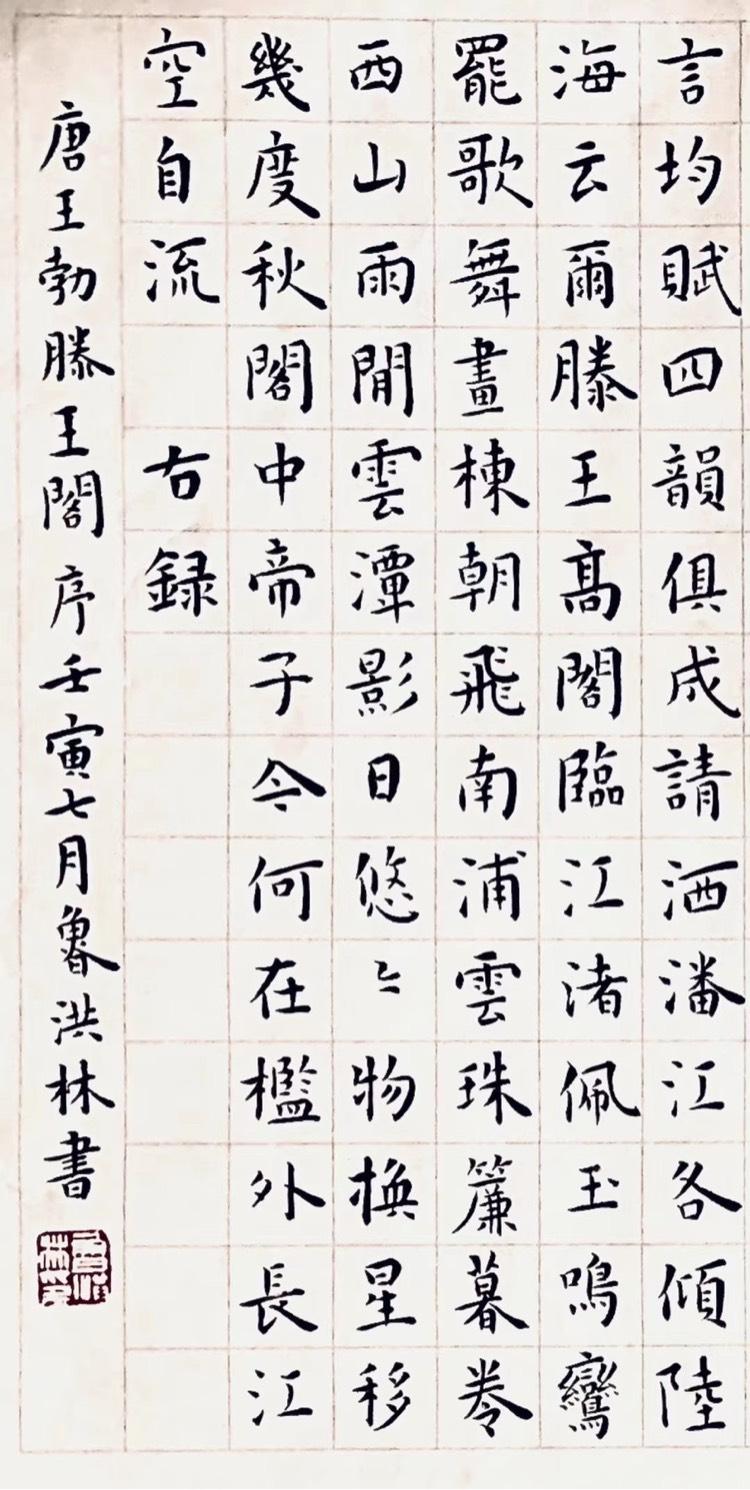 言均賦四韻俱成請洒潘江各傾陸
海云爾滕王髙閣臨江渚佩玉鳴鸞
罷歌舞畫棟朝飛南浦雲珠簾暮卷
西山雨閒雲潭影日悠々物換星移
幾度秋閣中帝子今何在檻外長江
空自流 右録
唐王勃滕王閣序壬寅七月魯洪林書
魯洪林印